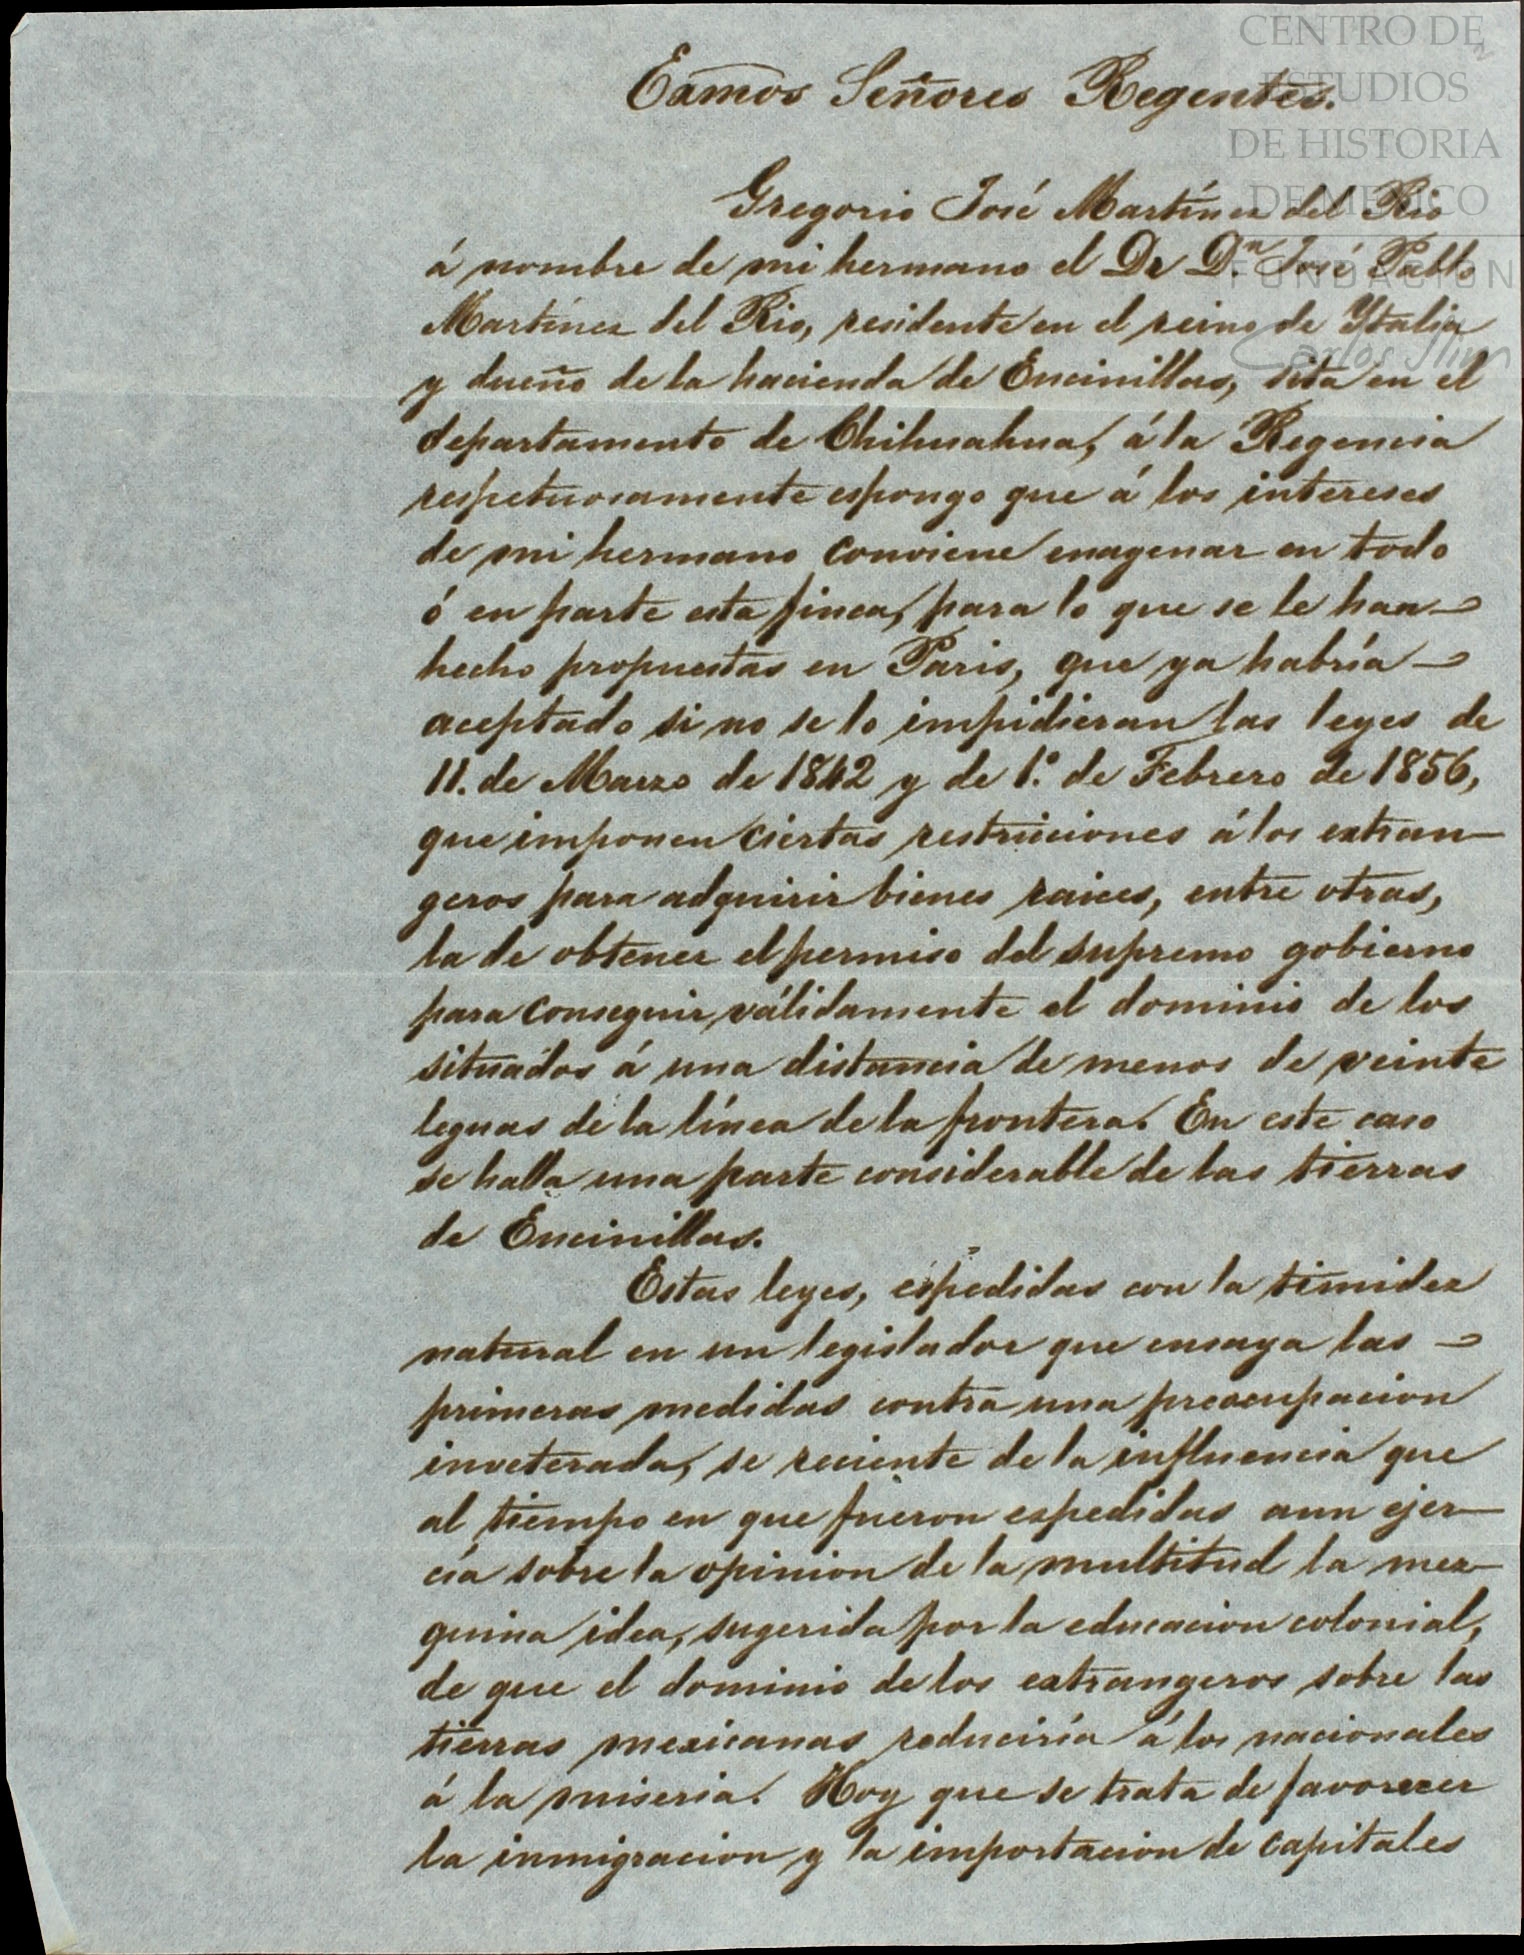 CENTRO DE
ESTUDIOS
DE HISTORIA
DE MEXICO
FUNDACION
Carlos Slim
Exmos Señores Regentes.
Gregorio José Martínez del Rio
á nombre de mi hermano el Dr D.n José Pablo
Martínez del Rio, residente en el reino de Ytalia
y dueño de la hacienda de Encinillas, sita en el
departamento de Chihuahua, á la Regencia
respetuosamente espongo que á los intereses
de mi hermano conviene enagenar en todo
ó en parte esta finca, para lo que se le han
hecho propuestas en Paris, que ya habría
aceptado si no se lo impidieran las leyes de
11. de Marzo de 1842 y de 1.º de Febrero de 1856,
que imponen ciertas restricciones á los extran-
geros para adquirir bienes raices, entre otras,
la de obtener el permiso del supremo gobierno
para conseguir válidamente el dominio de los
situados á una distancia de menos de veinte
leguas de la línea de la frontera. En este caso
se halla una parte considerable de las tierras
de Encinillas.
Estas leyes, espedidas con la timidez
natural en un legislador que ensaya las
primeras medidas contra una preocupacion
inveterada, se reciente de la influencia que
al tiempo en que fueron espedidas aun ejer-
cía sobre la opinion de la multitud la mez-
quina idea, sugerida por la educacion colonial,
de que el dominio de los extrangeros sobre las
tierras mexicanas reduciría á los nacionales
á la miseria. Hoy que se trata de favorecer
la inmigracion y la importacion de capitales